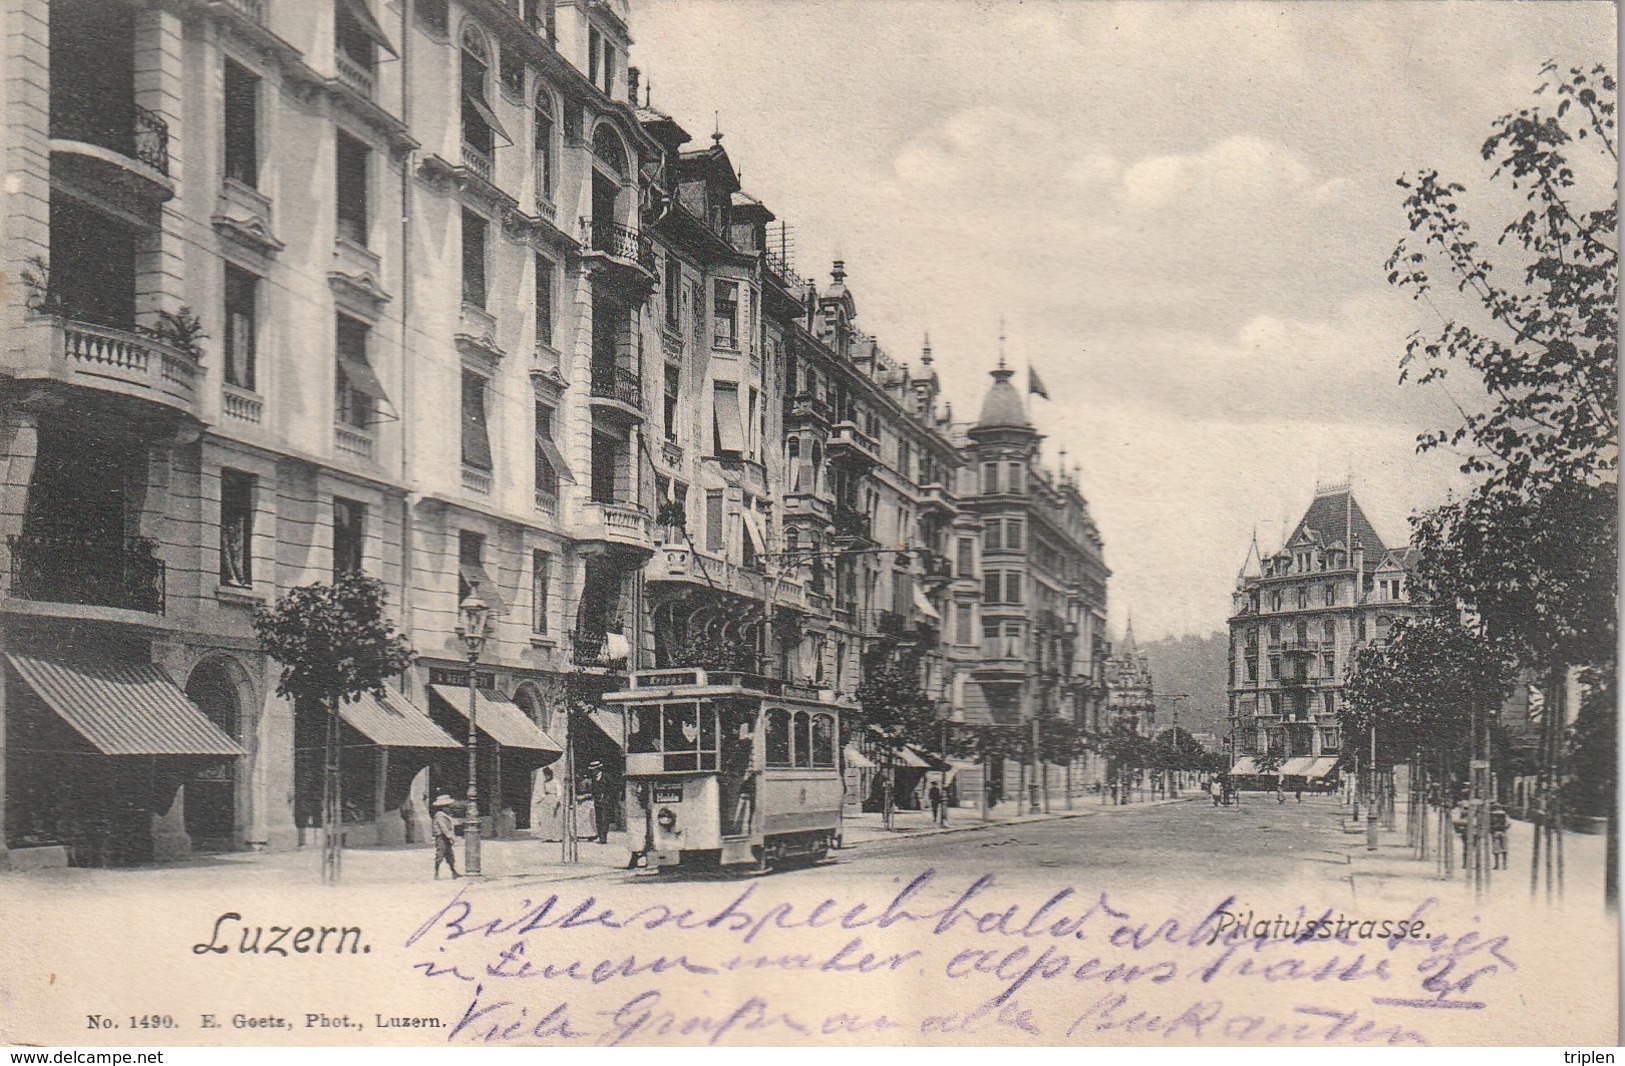 Kriens
Luzern.
Pilatusstrasse.
Bitte schreib bald. arbeite hier
in Luzern Alpenstrasse
Viele Grüße an alle Bekannten
No. 1490. E. Goetz, Phot., Luzern.
www.delcampe.net
triplen